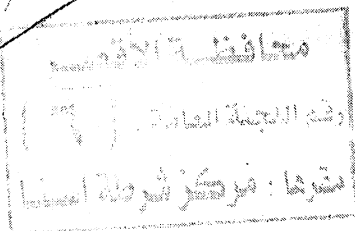 محافظة الأقصر
رقم اللجنة العامة : ( )
مقرها : مركز شرطة اسنا